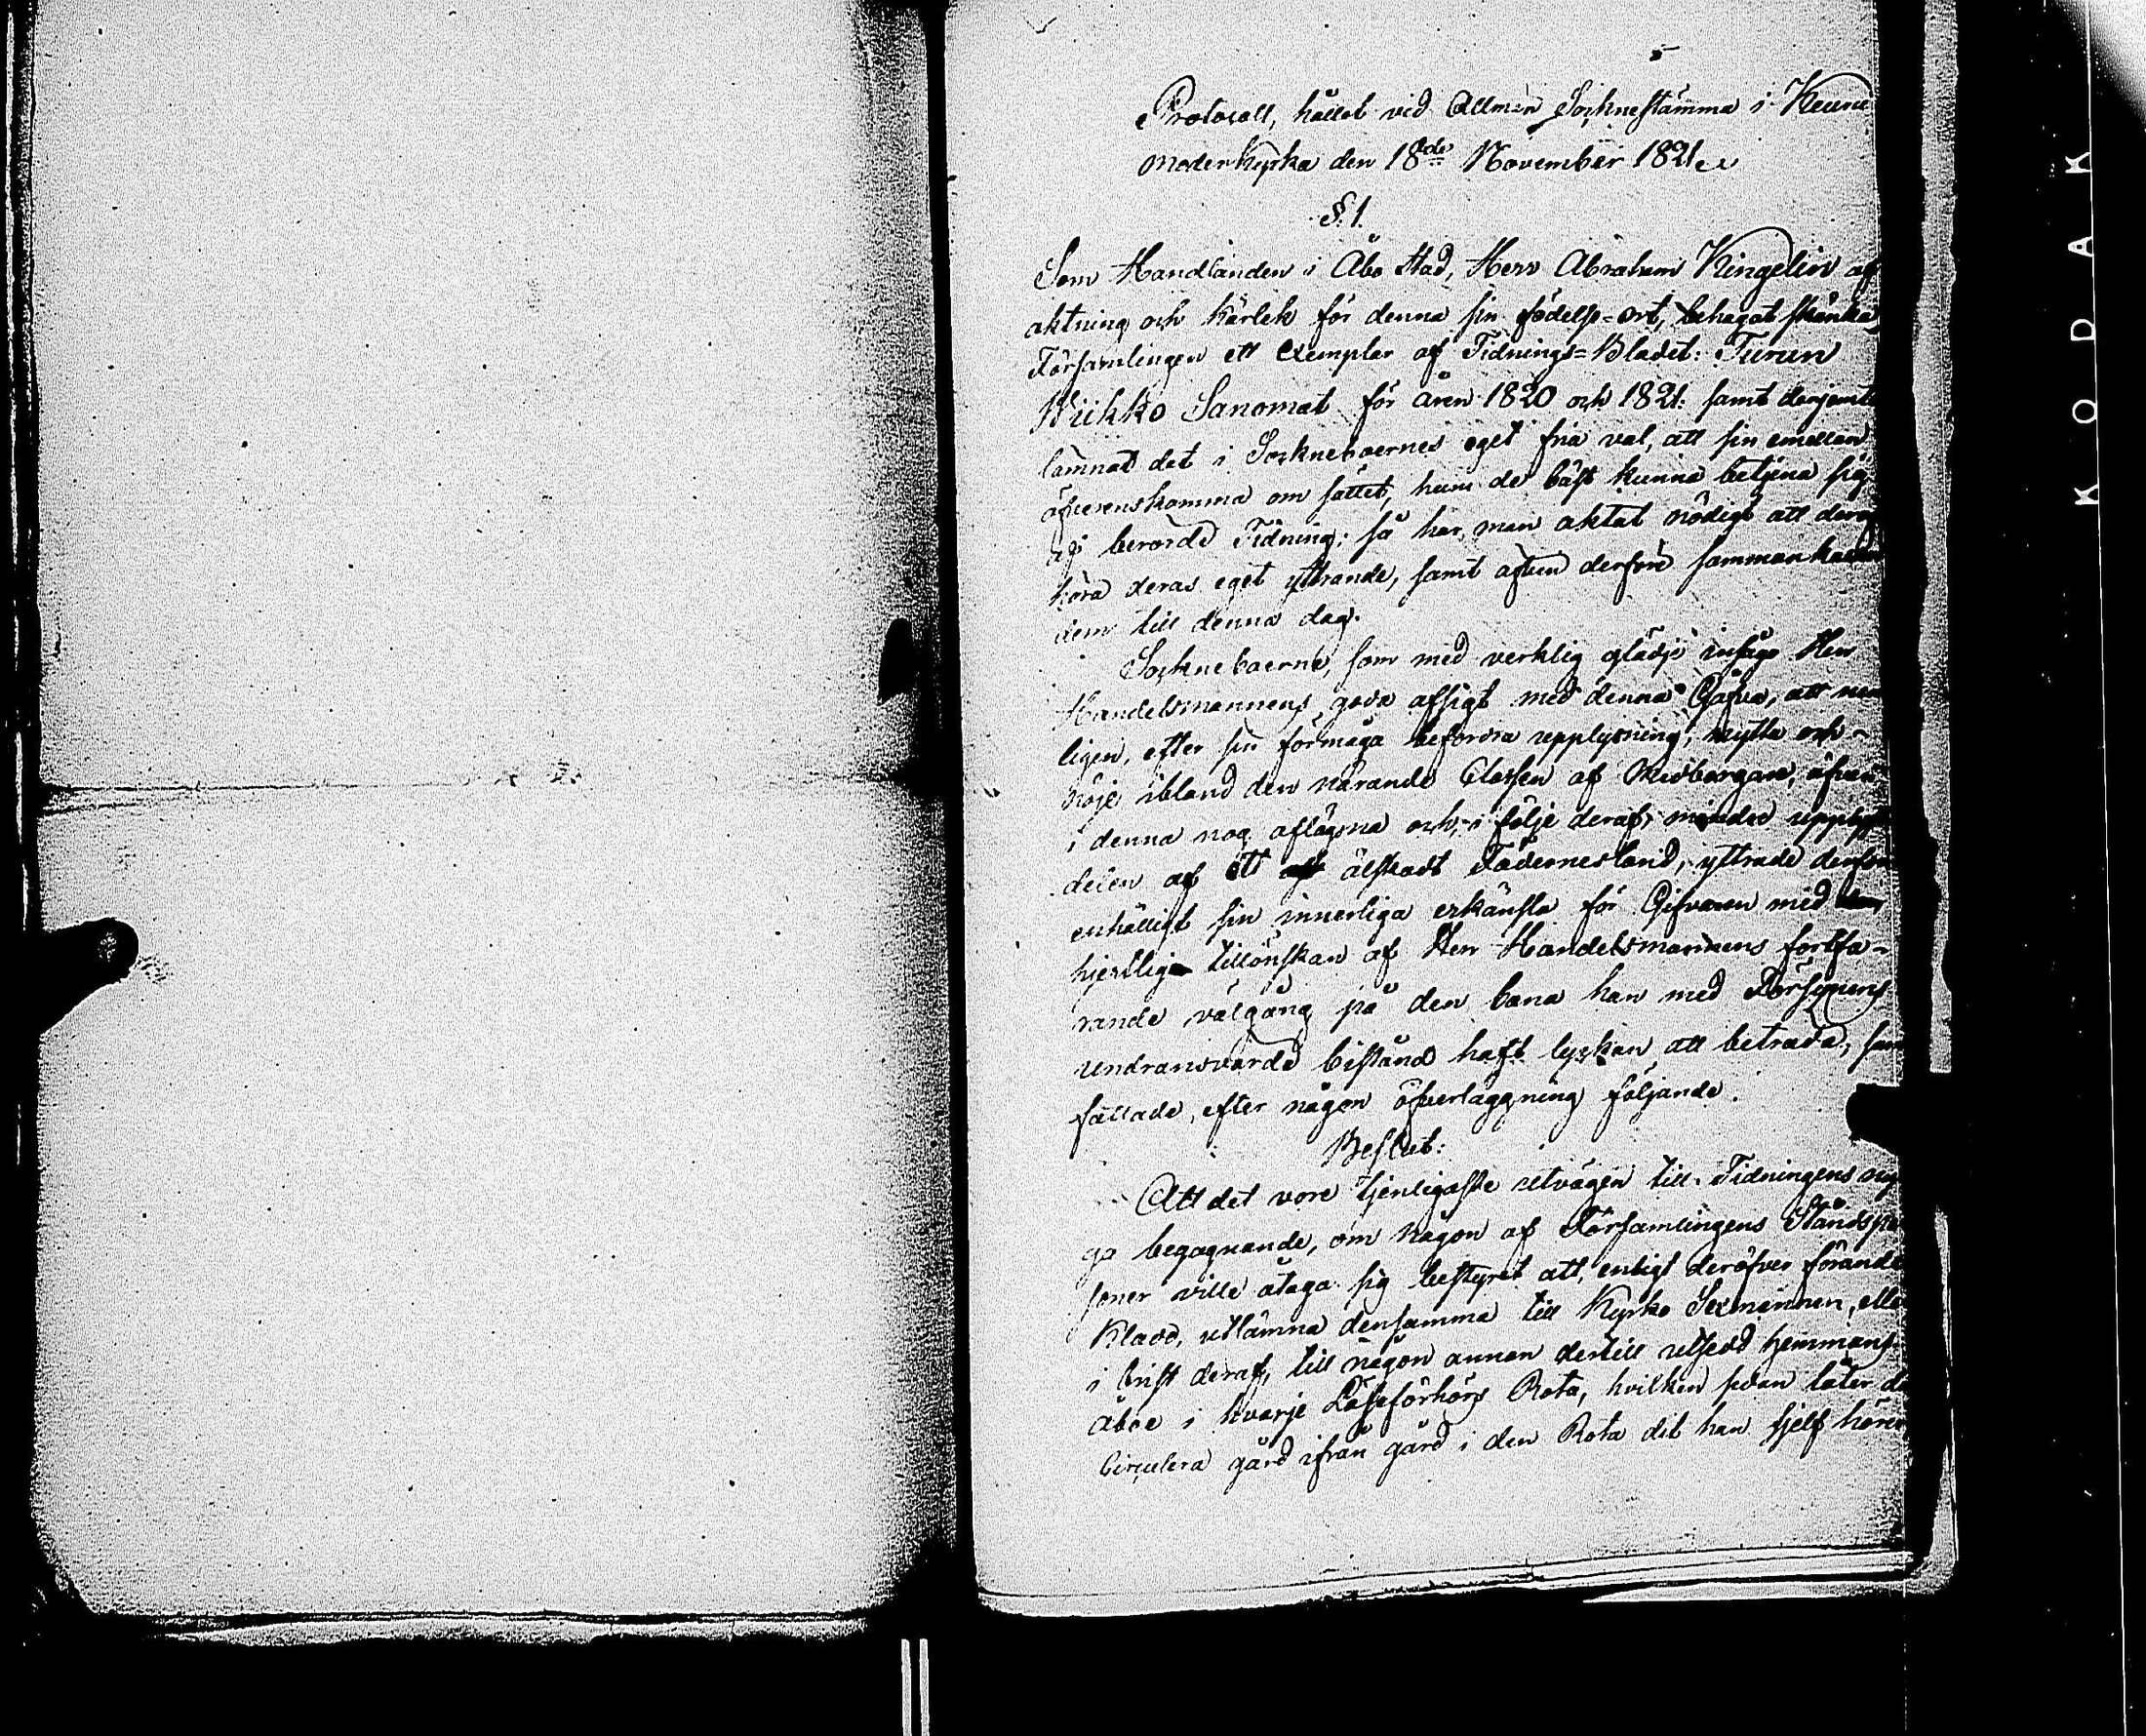 5
Protocoll, hållet vid Allmän Sockneftämma i Keuru
Moderkyrka den 18de November 1821.
§. 1.
Som Handlanden i Åbo Stad, Herr Abraham Kingelin af
aktning och kärlek för denna sin födelse-ort, behagat skänka
Församlingen ett Exemplar af Tidnings-Bladet: Turun
Wiikko Sanomat för åren 1820 och 1821. samt derjemte
lämnat det i Sockneboernes eget fria val, att sin emellan
öfverenskomma om sättet, huru de bäst kunna betjena sig
af berörde Tidning; så har man aktat nödigt att
höra deras eget yttrande, samt äfven derföre
dem till denna dag.
Socknehoerne, som med verklig glädje insågo Herr
Handelsmannens goda afsigt med denna Gåfva, att
ligen, efter sin förmåga befordra upplysning, nytta och
nöje ibland den närande Classen af Medborgare, äfven
i denna nog aflägsna och, i följe deraf, mindre
delen af ett älskadt Fädernesland, yttrade derföre
enhälligt sin innerliga erkänsla för Gifvaren med
hjertlig tillönskan af Herr Handelsmannens fortfa-
rande välgång på den bana han med Försynens
undransvärde bistånd haft lyckan att beträda;
fällade, efter någon öfverläggning följande.
Beslut:
Att det vore tjenligaste utvägen till Tidningens
begagnande, om någon af Församlingens
soner ville åtaga sig bestyret att, enligt deröfver förande
Kladd, utlämna densamma till Kyrko Sexmännen,
i brist deraf, till någon annan dertill utsedd hemmans
åboe i hvarje Läseförhörs Rota, hvilken sedan låter
Circulera gård ifrån gård i den Rota dit han sjelf hörer
KODAK